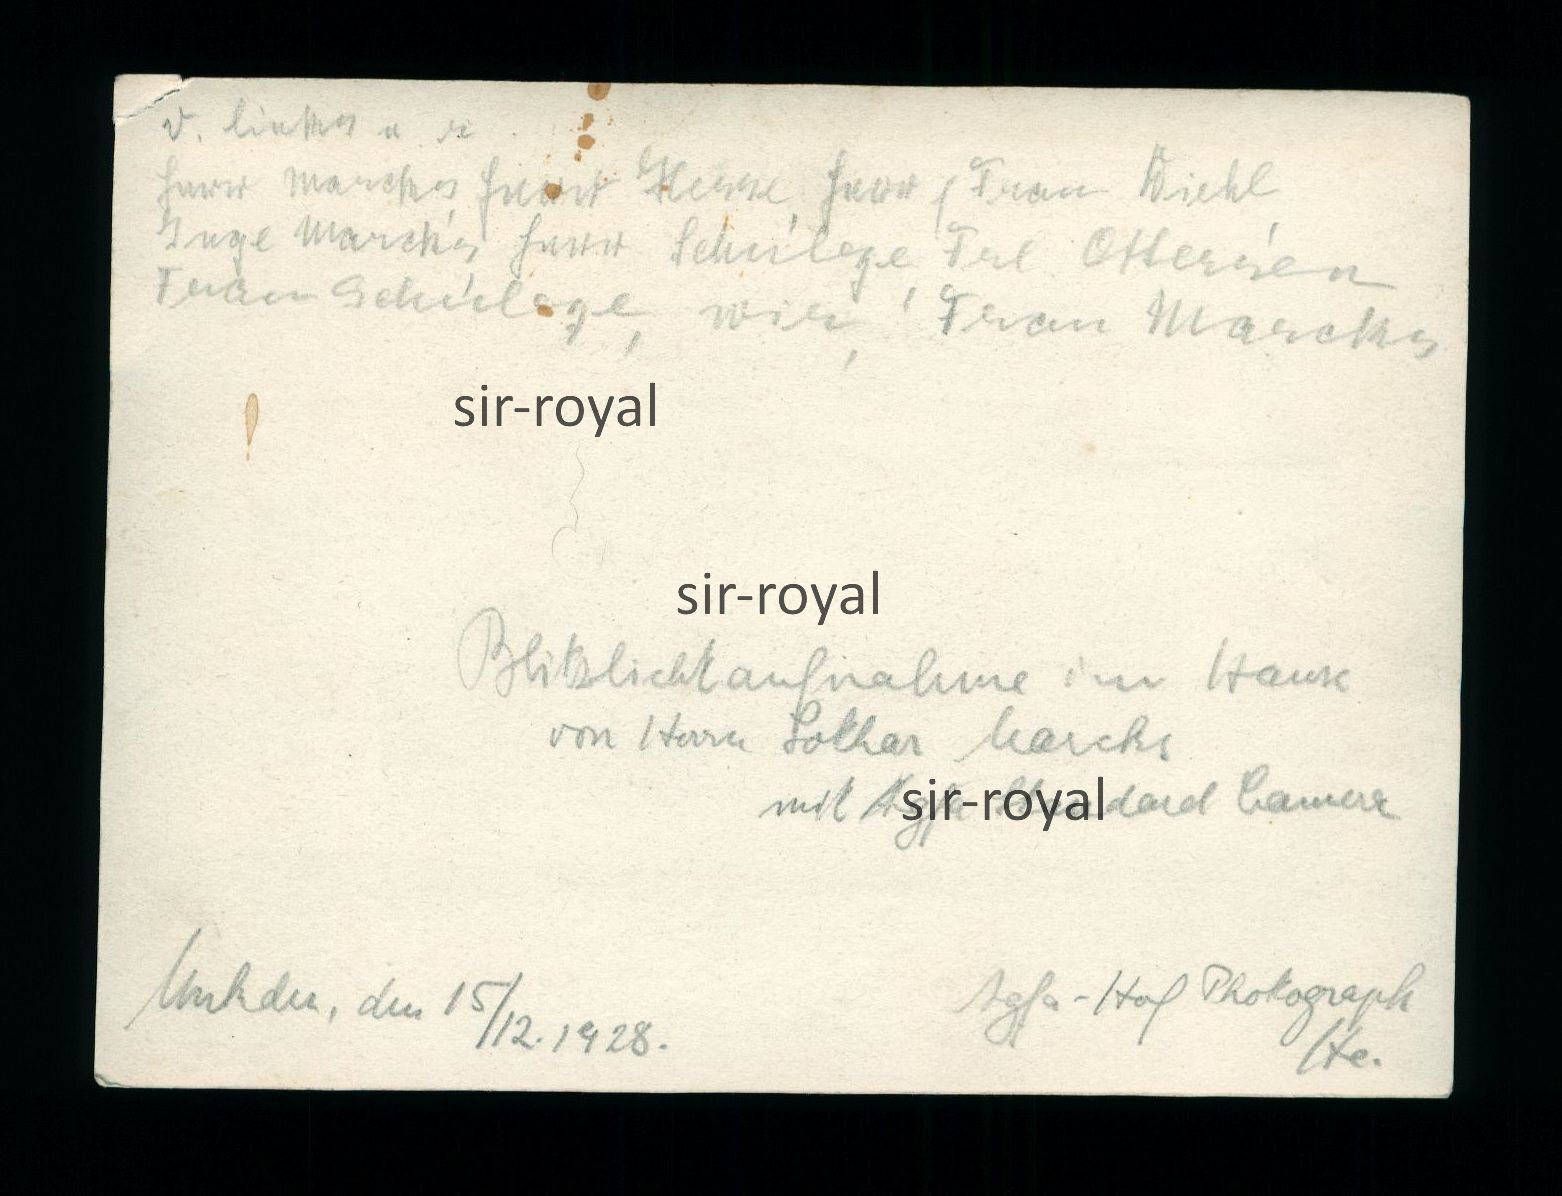 v. links n r.
Herr Marcks, Herr Hesse, Herr, Frau Diehl
Inge Marcks, Herr Schülege, Frl Ottersen
Frau Schülege, wir, Frau Marcks
sir-royal
sir-royal
Blitzlichtaufnahme im Hause
von Herrn Lothar Marcks
sir-royal
mit Agfa Standard Camera
Mukden, den 15/12.1928.
Agfa-Hof Photograph
He.